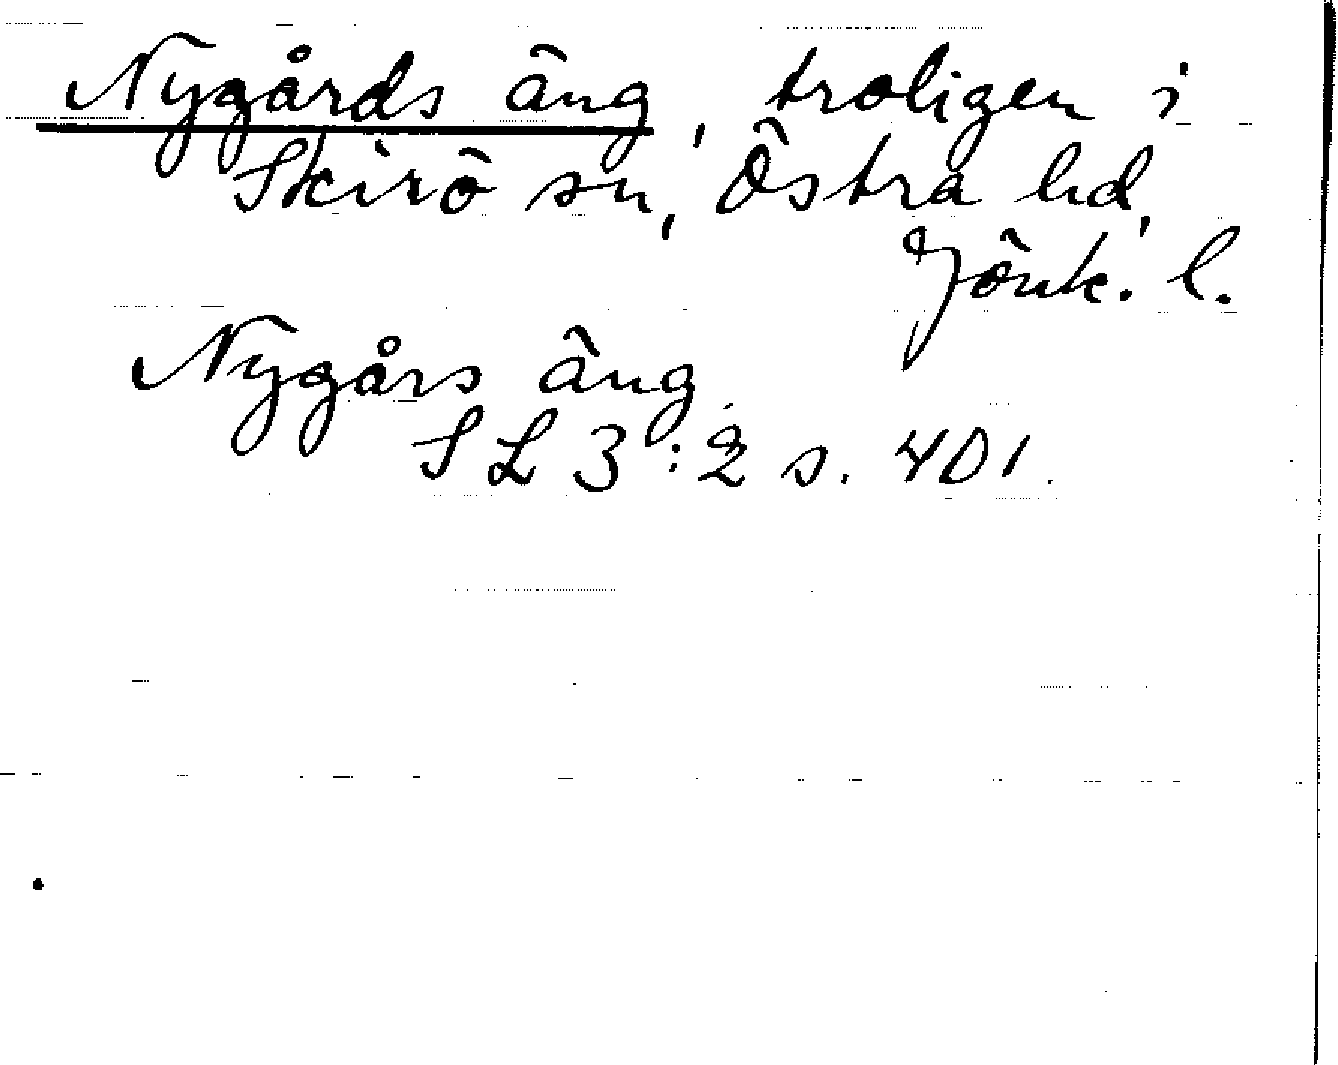 Nygårds äng, troligen i
Skirö sn, Östra hd,
Jönk. l.
Nygårs äng
SL 3:2 s. 401.